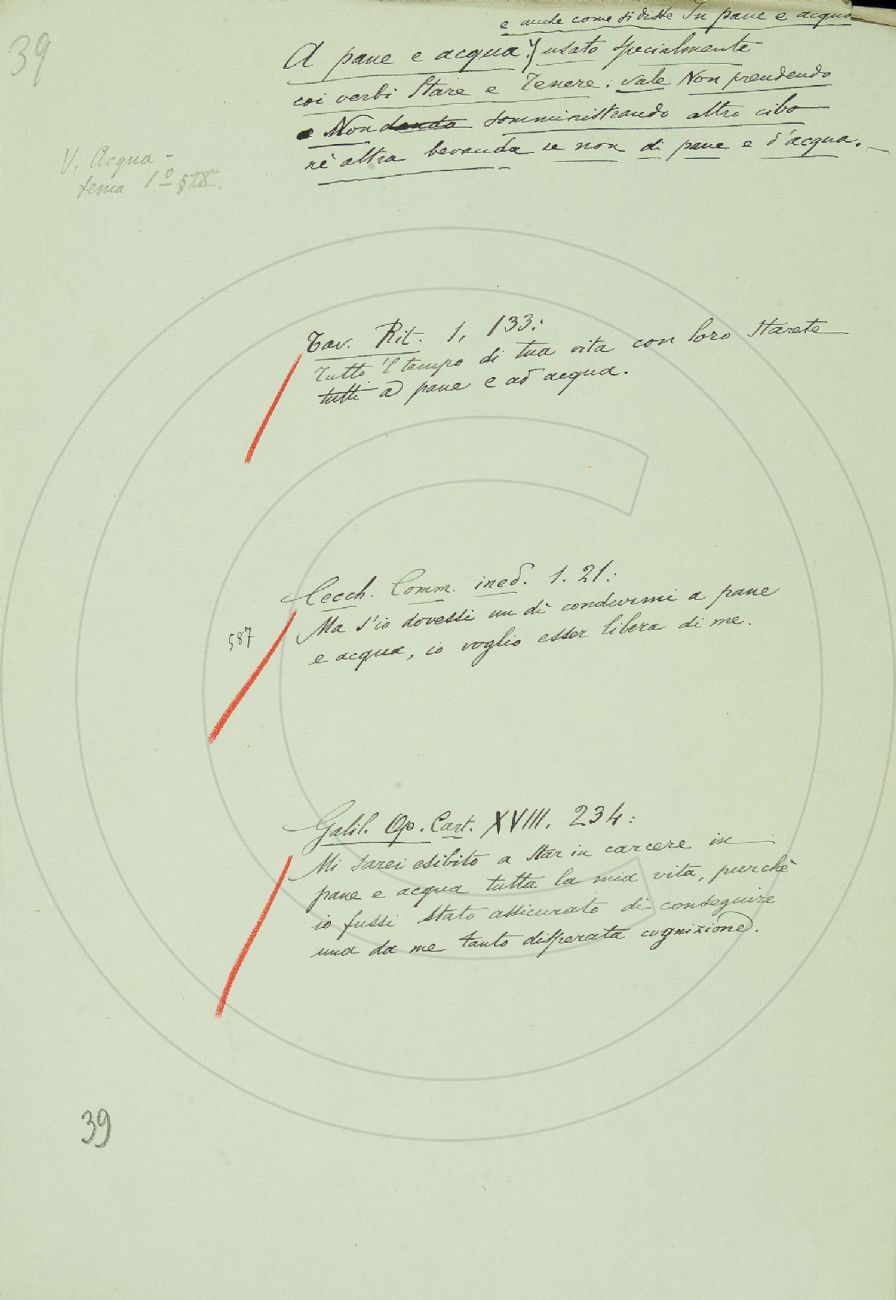 39
e anche come si disse In pane e acqua
A pane e acqua, usato specialmente
coi verbi Stare e Tenere, vale Non prendendo
e Non dando somministrando altro cibo
nè altra bevanda se non di pane e d'acqua. —
V. Acqua -
tema 1º §IX.
Tav. Rit. 1, 133:
Tutto 'l tempo di tua vita con loro starete
tutti a pane e ad acqua.
Cecch. Comm. ined. 1. 21:
587
Ma s'io dovessi un dì condurmi a pane
e acqua, io voglio esser libera di me.
Galil. Op. Cart. XVIII. 234:
Mi sarei esibito a star in carcere in
pane e acqua tutta la mia vita, purchè
io fussi stato assicurato di conseguire
una da me tanto disperata cognizione.
39